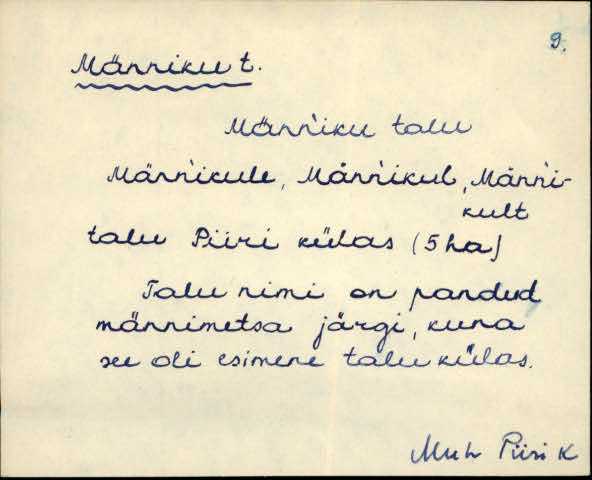 9.
Männiku t.
Män'n'iku talu
Män'n'ikule, Män'n'ikul, Män'n'i-
kult
talu Piiri külas (5 ha)
Talu nimi on pandud
männimetsa järgi, kuna
see oli esimene talu külas.
Muh Piiri K